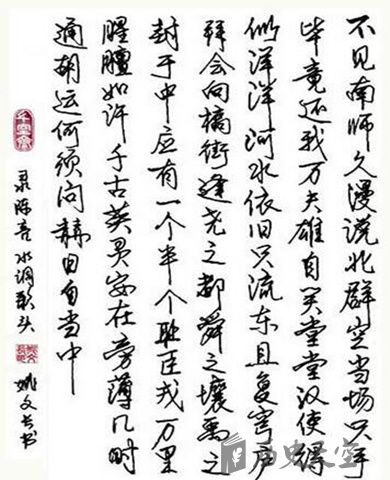 不见南师久漫说北群空当场只手
毕竟还我万夫雄自笑堂堂汉使得
似洋洋河水依旧只流东且复穹庐
拜会向槁街逢尧之都舜之壤禹之
封于中应有一个半个耻臣戎万里
腥膻如许千古英灵安在旁薄几时
通胡运何须问赫日自当中
录陈亮水调歌头
姚文长书